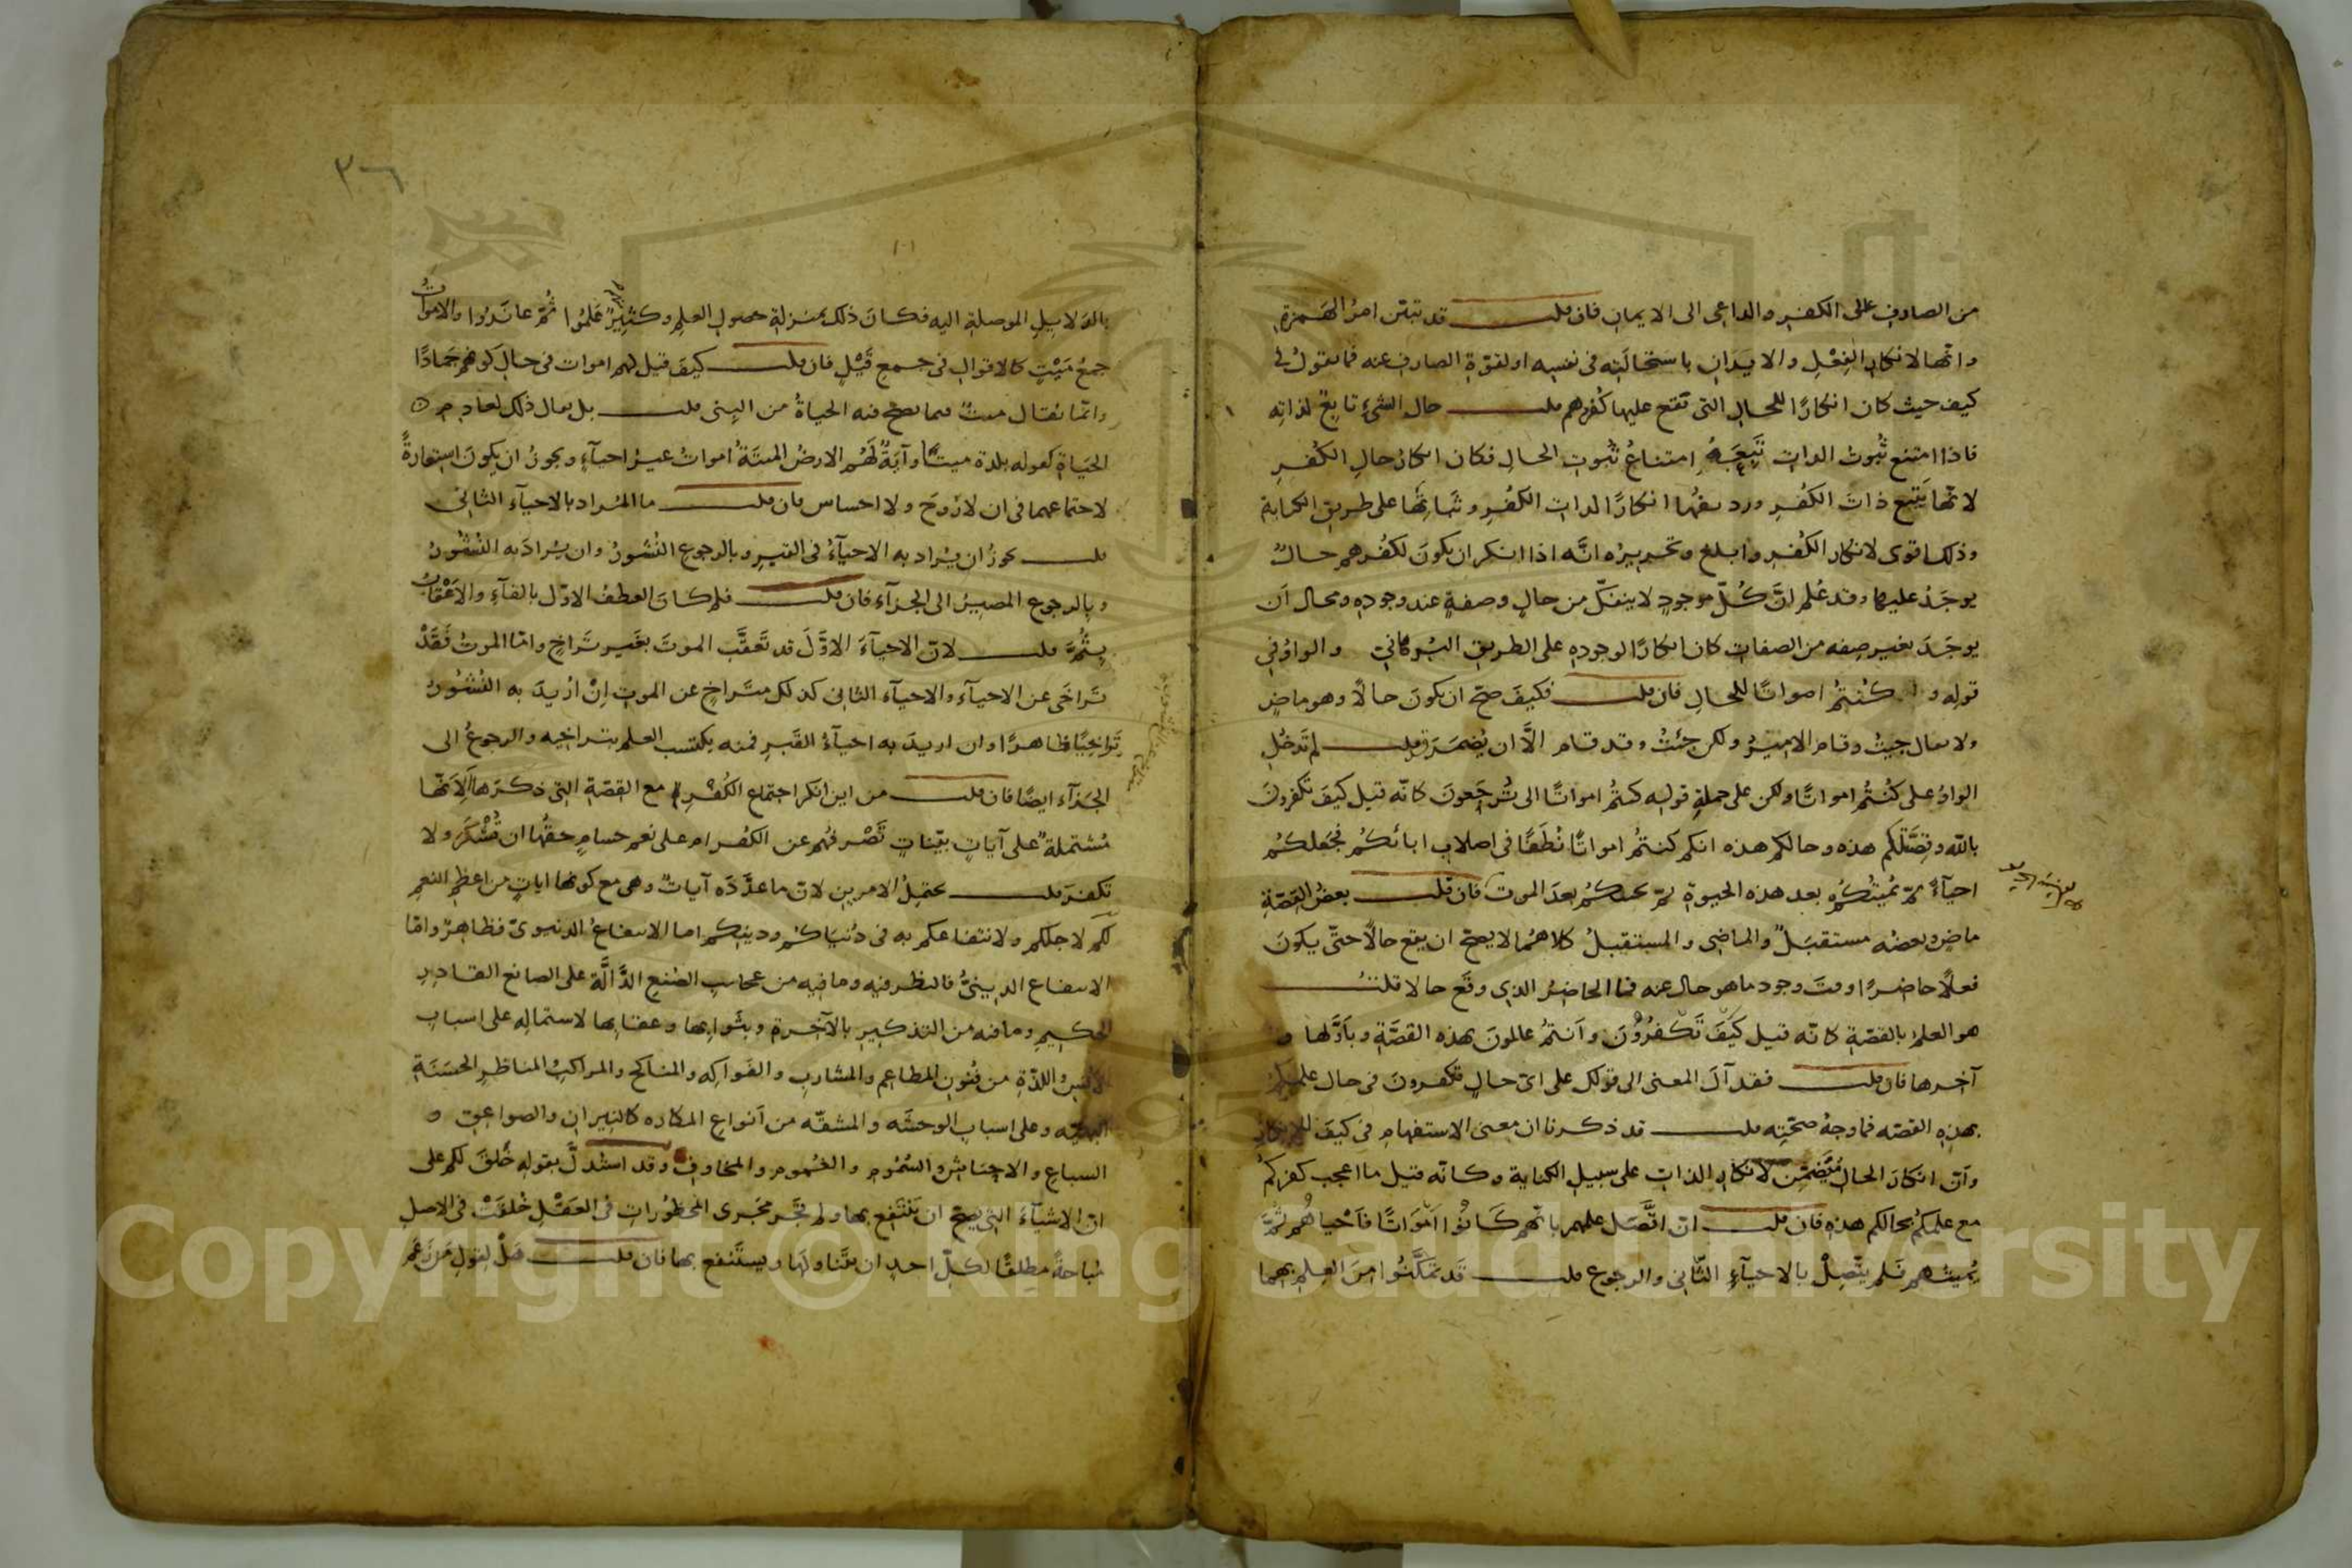 من الصارف على الكفر والداعى الى الايمان فان قلت قد تبين امر الهمزة
وانها لانكار الفعل والايذان باستحالته فى نفسه او لقوة الصارف عنه فما تقول فى
كيف حيث كان انكارا للحال التى تقع عليها كفرهم قلت حال الشئ تابعة لذاته
فاذا امتنع ثبوت الذات تبعه امتناع ثبوت الحال فكان انكار حال الكفر
لانها يتبع ذات الكفر ورديفها انكارا لذات الكفر وثباتها على طريق الكناية
وذلك اقوى لانكار الكفر وابلغ وتحريره انه اذا انكر ان يكون لكفرهم حال
يوجد عليها وقد علم ان كل موجود لا ينفك من حال وصفة عند وجوده ومحال ان
يوجد بغير صفه من الصفات كان انكارا لوجوده على الطريق البرهانى والواو فى
قوله وكنتم امواتا للحال فان قلت فكيف صح ان يكون حالا وهو ماض
ولا يقال جيت وقام الامير ولكن جئت وقد قام الا ان يضمر قد قلت لم تدخل
الواو على كنتم امواتا ولكن على جملة قوله كنتم امواتا الى ترجعون كانه قيل كيف تكفرون
بالله وقصتكم هذه وحالكم هذه انكم كنتم امواتا نطفا فى اصلاب ابائكم فجعلكم
احياء ثم يميتكم بعد هذه الحيوة ثم يحييكم بعد الموت فان قلت بعض القصة
ماض وبعضه مستقبل والماضى والمستقبل كلاهما لا يصح ان يقع حالا حتى يكون
فعلا حاضرا وقت وجود ما هو حال عنه فما الحاضر الذى وقع حالا قلت
هو العلم بالقصة كانه قيل كيف تكفرون وانتم عالمون بهذه القصة وباولها و
آخرها فان قلت فقد آل المعنى الى قولك على اى حال تكفرون فى حال علمكم
بهذه القصه فما وجه صحته قلت قد ذكرنا ان معنى الاستفهام فى كيف للانكار
وان انكار الحال متضمن لانكار الذات على سبيل الكناية وكانه قيل ما اعجب كفركم
مع علمكم بحالكم هذه فان قلت ان اتصل علمهم بانهم كانوا امواتا فاحياهم ثم
يميتهم فلم يتصل بالاحياء الثانى والرجوع قلت قد تمكنوا من العلم بهما
٣٦
بالدلايل الموصلة اليه فكان ذلك بمنزلة حصول العلم وكثير علموا ثم عاندوا والاموات
جمع ميت كالاقوال فى جمع قيل فان قلت كيف قيل لهم اموات فى حال كونهم جمادا
وانما يقال ميت فيما يصح فيه الحياة من البنى قلت بل يقال ذلك لعادم
الحياة كقوله بلدة ميتا وآية لهم الارض الميتة اموات غير احياء ويجوز ان يكون استعارة
لاجتماعهما فى ان لا روح ولا احساس فان قلت ما المراد بالاحياء الثانى
قلت يجوز ان يراد به الاحياء فى القبر وبالرجوع النشور وان يراد به النشور
وبالرجوع المصير الى الجزاء فان قلت فلم كان العطف الاول بالفاء والاعقاب
بثم قلت لان الاحياء الاول قد تعقب الموت بغير تراخ واما الموت فقد
تراخى عن الاحياء والاحياء الثانى كذلك متراخ عن الموت ان اريد به النشور
تراخيا ظاهرا وان اريد به احياء القبر فمنه يكتسب العلم بتراخيه والرجوع الى
الجزاء ايضا فان قلت من اين انكر اجتماع الكفر مع القصة التى ذكرها الانها
مشتملة على آيات بينات تصرفهم عن الكفر ام على نعم جسام حقها ان تشكر ولا
تكفر قلت يحتمل الامرين لان ما عدده آيات وهى مع كونها ايات من اعظم النعم
لكم لاجلكم ولانتفاعكم به فى دنياكم ودينكم اما الانتفاع الدنيوى فظاهر واما
الانتفاع الدينى فالنظر فيه وما فيه من عجايب الصنع الدالة على الصانع القادر
الحكيم وما فيه من التذكير بالآخرة وبثوابها وعقابها لاشتماله على اسباب
الانس واللذة من فنون المطاعم والمشارب والفواكه والمناكح والمراكب المناظر الحسنة
البهية وعلى اسباب الوحشه والمشقه من انواع المكاره كالنيران والصواعق و
السباع والاحناش والسموم والغموم والمخاوف وقد استدل بقوله خلق لكم على
ان الاشياء التى يصح ان ينتفع بها ولم تجر مجرى المحظورات فى العقل خلقت فى الاصل
مباحة مطلقا لكل احد ان يتناولها ويستنفع بها فان قلت هل لقول من زعم
Copyright © King Saud University